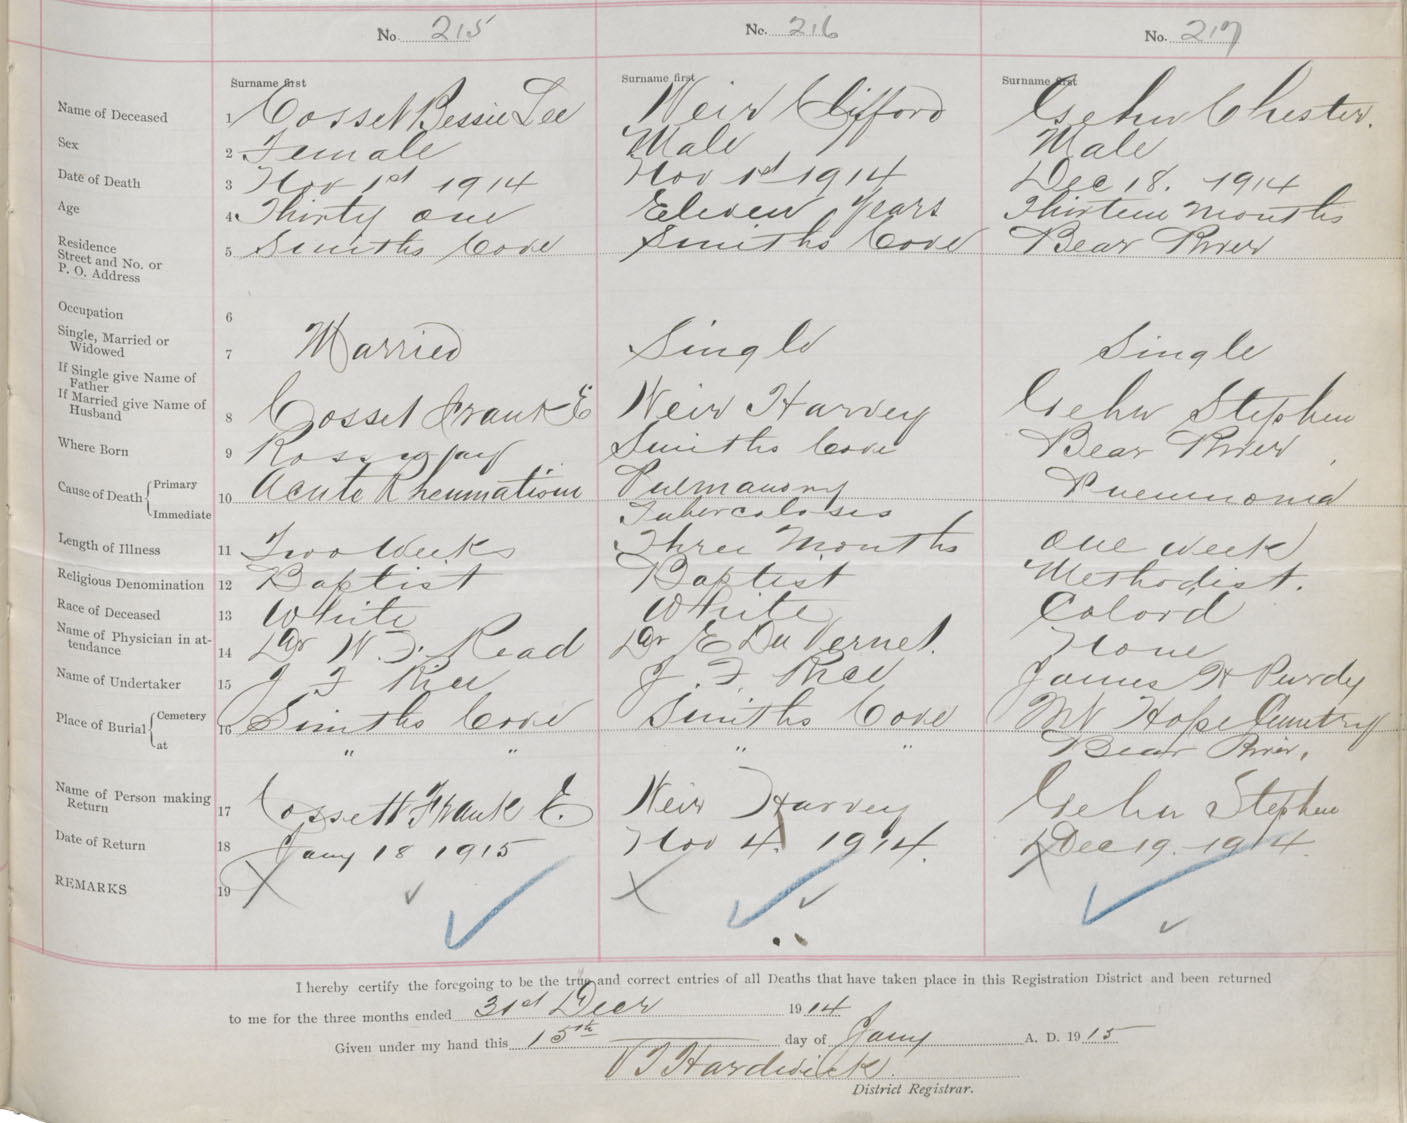 No. 215 No. 216 No. 217
Surname first Surname first Surname first
Name of Deceased 1 Cosset Bessie Lee Weir Clifford Gehu Chester.
Sex 2 Female Male Male
Date of Death 3 Nov 1st 1914 Nov 1st 1914 Dec 18. 1914
Age 4 Thirty one Eleven Years Thirteen Months
Residence
Street and No. or
P. O. Address 5 Smiths Cove Smiths Cove Bear River
Occupation 6
Single, Married or
Widowed 7 Married Single Single
If Single give Name of
Father
If Married give Name of
Husband 8 Cosset Frank E Weir Harvey Gehu Stephen
Where Born 9 Rossway Smiths Cove Bear River
Cause of Death { Primary 10 Acute Rheumatism Pulmanory Pneumonia
Immediate Tuberculosis
Length of Illness 11 Two Weeks Three Months One week
Religious Denomination 12 Baptist Baptist Methodist.
Race of Deceased 13 White White Colord
Name of Physician in at-
tendance 14 Dr W. F. Read Dr E Du Vernet. None
Name of Undertaker 15 J F Rice J. F. Rice James H Purdy
Place of Burial { Cemetery 16 Smiths Cove Smiths Cove Mt Hope Cemetry
at " " " " Bear River.
Name of Person making
Return 17 Cossett Frank E. Weir Harvey Gehu Stephen
Date of Return 18 Jany 18 1915 Nov 4. 1914. Dec 19. 1914
REMARKS 19
I hereby certify the foregoing to be the true and correct entries of all Deaths that have taken place in this Registration District and been returned
to me for the three months ended 31st Decr 1914
Given under my hand this 15th day of Jany A. D. 1915
Hardwick
District Registrar.